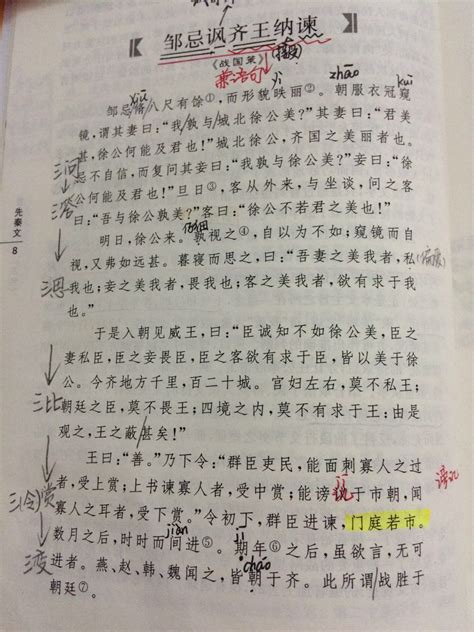 邹忌讽齐王纳谏
《战国策》
兼语句
zhāo
kuī
邹忌修八尺有馀①,而形貌昳丽②。朝服衣冠窥
镜,谓其妻曰:“我孰与城北徐公美?”其妻曰:“君美
甚,徐公何能及君也!”城北徐公,齐国之美丽者也。
忌不自信,而复问其妾曰:“吾孰与徐公美?”妾曰:“徐
公何能及君也!”旦日③,客从外来,与坐谈,问之客
曰:“吾与徐公孰美?”客曰:“徐公不若君之美也!”
明日,徐公来。孰视之④,自以为不如;窥镜而自
视,又弗如远甚。暮寝而思之,曰:“吾妻之美我者,私
我也;妾之美我者,畏我也;客之美我者,欲有求于我
也。”
于是入朝见威王,曰:“臣诚知不如徐公美,臣之
妻私臣,臣之妾畏臣,臣之客欲有求于臣,皆以美于徐
公。今齐地方千里,百二十城。宫妇左右,莫不私王;
朝廷之臣,莫不畏王;四境之内,莫不有求于王:由是
观之,王之蔽甚矣!”
王曰:“善。”乃下令:“群臣吏民,能面刺寡人之过
者,受上赏;上书谏寡人者,受中赏;能谤讥于市朝,闻
寡人之耳者,受下赏。”令初下,群臣进谏,门庭若市。
jiàn
数月之后,时时而间进⑤。期年⑥之后,虽欲言,无可
进者。燕、赵、韩、魏闻之,皆朝于齐。此所谓战胜于
cháo
朝廷⑦。
三问
三答
三思
三比
三(令)赏
三变
先秦文
8